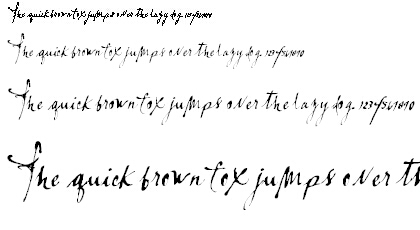 The quick brown fox jumps over the lazy dog. 1234567890
The quick brown fox jumps over the lazy dog. 1234567890
The quick brown fox jumps over the lazy dog. 1234567890
The quick brown fox jumps over th